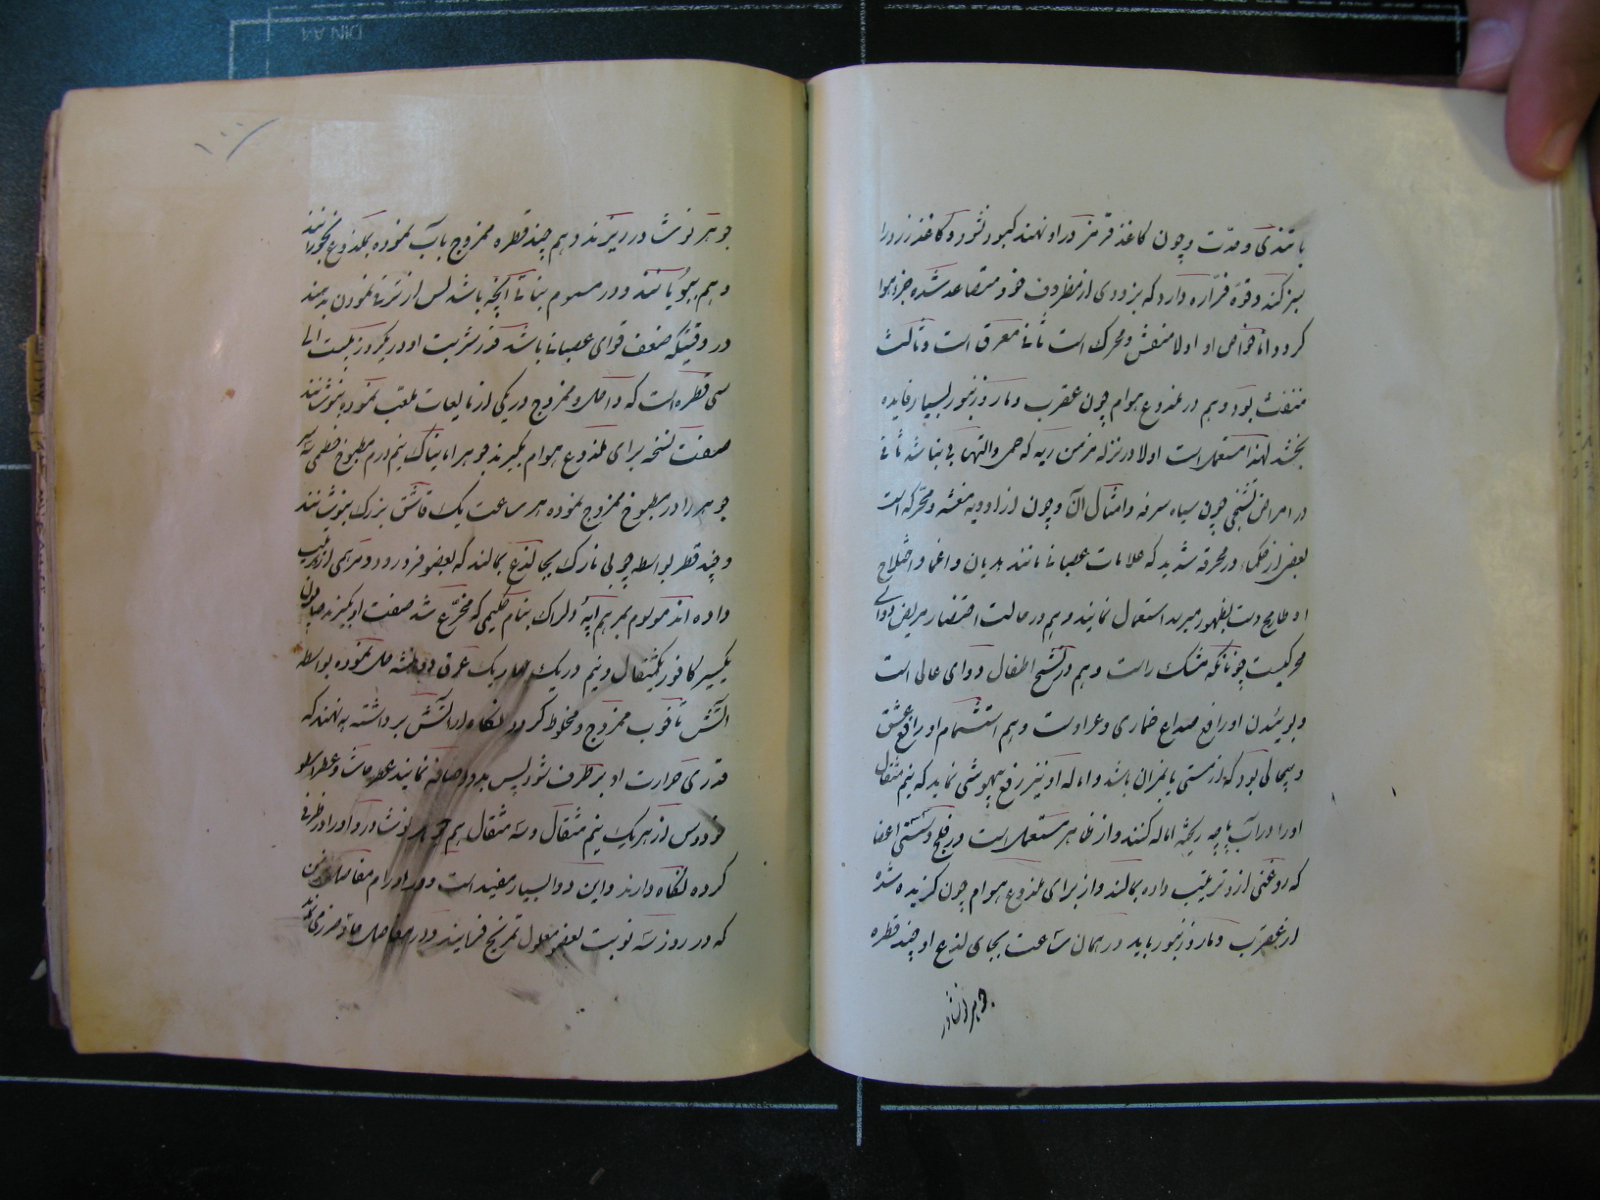 با تندی و حدت و چون کاغذ قرمز در او نهند کبود شود و کاغذ زرد را
سبز کند و قوه فرّاره دارد که بزودی از مظروف خود متصاعد شده جزء هوا
گردد اما خواص او اولا منفش و محرک است ثانیا معرق است و ثالث
منفث بود و هم در ملذوع هوام چون عقرب و مار و زنبور بسیار فایده
بخشد لهذا مستعمل است اولا در نزله مزمن ریه که حمی و التهابی نباشد ثانی
در امراض تشنجی چون سیاه سرفه و امثال آن و چون از ادویه منعشه و محرکه است
بعضی از حکما در محرقه شدید که علامات عصبانی مانند هذیان و اغما و اختلاج
او طایح دست بظهور میرسد استعمال نمایند و هم در حالت احتضار مریض دوای
محرکیست چونانکه مشک راست و هم در تشنج اطفال دوای عالی است
و بوئیدن او رافع صداع خماری و عراوست و هم استشمام او رافع غشی
و بیحالی بود که از مستی یا بحران باشد و اماله او نیز رفع بیهوشی نماید که نیم مثقال
او را در آب پاچه ریخته اماله کنند و از ظاهر مستعمل است در فلج و سستی اعضا
که روغنی از او ترتیب داده بمالند و از برای ملذوع هوام چون گزیده شده
از عقرب و مار و زنبور باید در همان ساعت بجای لذع او چند قطره
جوهر نشادر
۱۰۰
جوهر نوشادر ریزند و هم چند قطره ممزوج بآب نموده بملذوع بخورانند
و هم ببویانند و در مسموم بنباتات آلیه باشد پس از شربانمودن بدهند
در وقتیکه ضعف قوای عصبانی باشد قدر شربت او در یکروز بیست الی
سی قطره است که داخل و ممزوج در یکی از مایعات ملعب نموده بنوشانند
صفت نسخه برای ملذوع هوام بگیرند جوهر امانیاک نیم درم مطبوخ خطمی سه سیر
جوهر را در مطبوخ ممزوج نموده هر ساعت یک قاشق بزرگ بنوشانند
و چند قطر بواسطه چوبی نازک بجا لذع بمالند که بعضو فرو رود و مرهمی از او ترتیب
داده اند موسوم بمرهم اپه دلرک بنام حکیمی که مخترع شد صفت او بگیرند صابون
یکسیر کافور یکمثقال و نیم در یک چار یک عرق دو آتشه حل نموده بواسطه
آتش تا خوب ممزوج و مخلوط گردد آنگاه از آتش برداشته به نهند که
قدری حرارت او بر طرف شود پس بدو اضافه نمایند عطر حاشا و عطر اسطو
خودوس از هر یک نیم مثقال و سه مثقال هم جوهر نوشادر و او را در ظرفی
کرده نگاه دارند و این دوا بسیار مفید است در اورام مفاصل مزمن
که در روز سه نوبت بعضو معلول تمریخ فرمایند و در مفاصل حاد ضرری